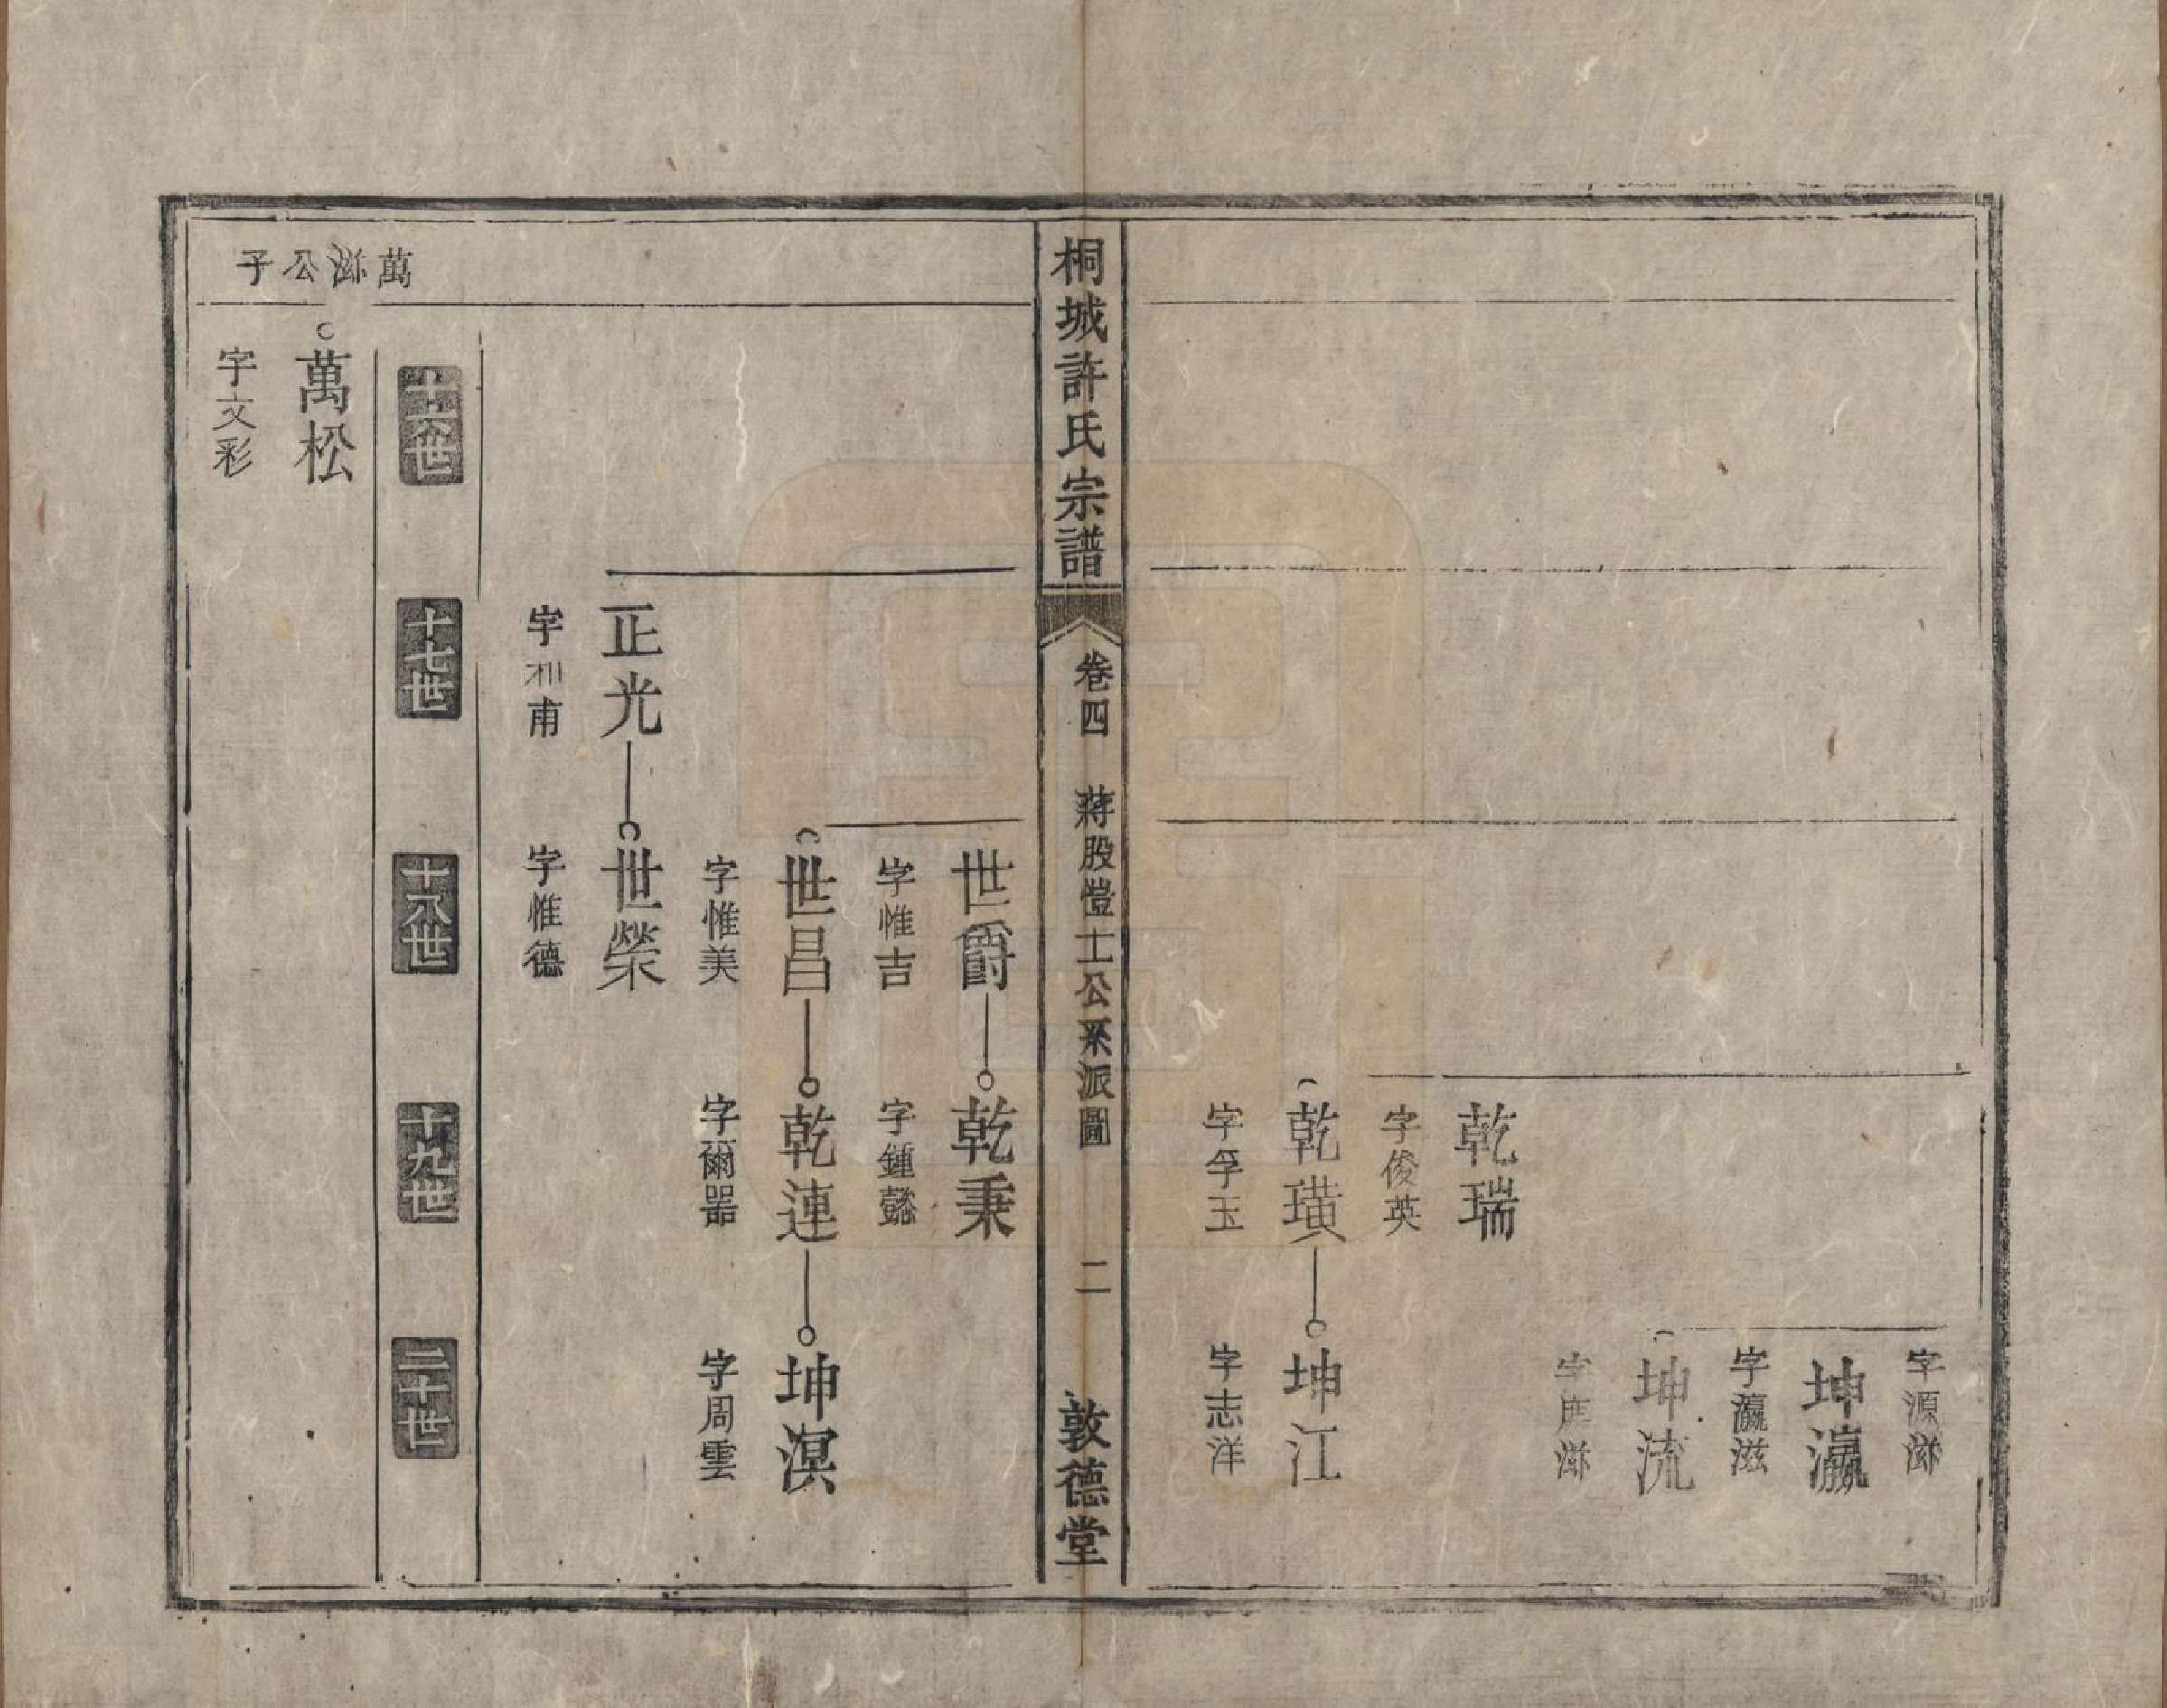 字源滋
坤瀛
字瀛滋
坤流
滋
乾瑞
字俊英
乾璜
字孚玉
坤江
字志洋
桐城許氏宗譜
卷四
蔣股愷士公系派圖
二
敦德堂
世爵
字惟吉
乾秉
字鍾懿
世昌
字惟美
乾連
字爾器
坤溟
字周雲
正光
字和甫
世榮
字惟德
十六世
十七世
十八世
十九世
二十世
萬滋公子
萬松
字文彩